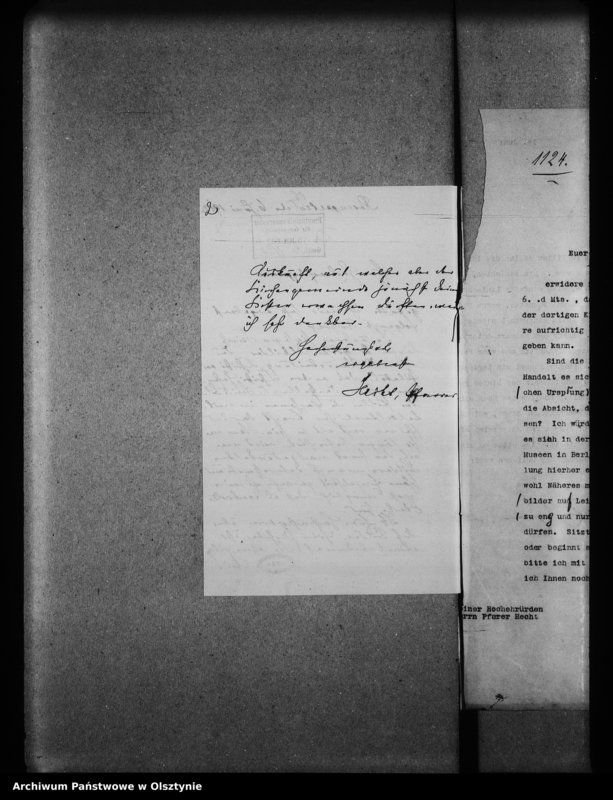 2
Auskunft, mit welcher aber der
Kirchengemeinde hinsichtl. keine
Kosten erwachsen dürften, wäre
ich sehr dankbar.
Hochachtungsvoll
ergebenst
Hecht, Pfarrer
1124.
Euer
erwidere
6. d Mts., d
der dortigen K
re aufrichtig
geben kann.
Sind die
Handelt es sic
chen Ursprung)
die Absicht, d
sen? Ich würd
es sich in der
Museen in Berl
lung hierher e
wohl Näheres m
bilder auf Lei
zu eng und nur
dürfen. Sitzt
oder beginnt s
bitte ich mit
ich Ihnen noch
iner Hochehrürden
rrn Pfarer Hecht
Archiwum Państwowe w Olsztynie